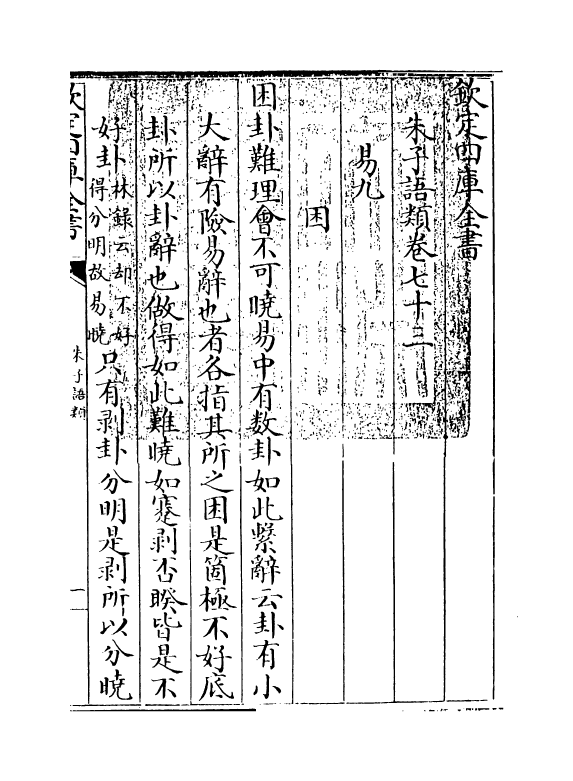 欽定四庫全書
朱子語類卷七十三
易九
困
困卦難理會不可曉易中有數卦如此繫辭云卦有小
大辭有險易辭也者各指其所之困是箇極不好底
卦所以卦辭也做得如此難曉如蹇剥否睽皆是不
好卦林録云却不好得分明故易曉只有剥卦分明是剥所以分曉
欽定四庫全書
朱子語類
一